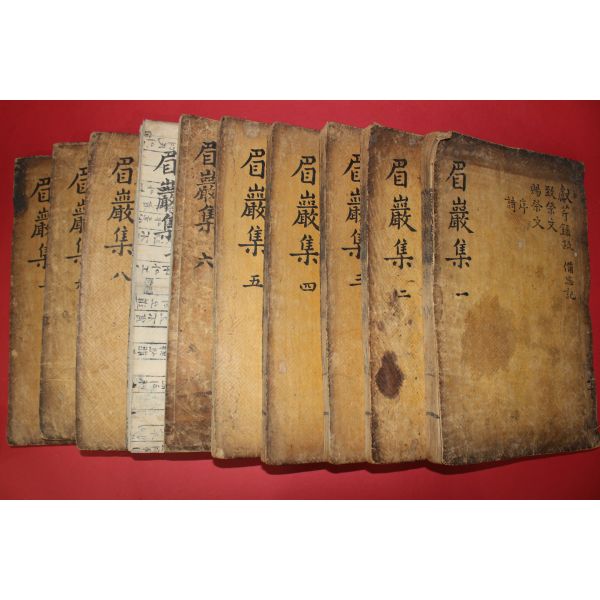 眉巖集 一
獻芹錄跋 備忘記
致祭文
賜祭文
序
詩
眉巖集 二
眉巖集 三
眉巖集 四
眉巖集 五
眉巖集 六
眉巖集
眉巖集 八
眉巖集 九
眉巖集